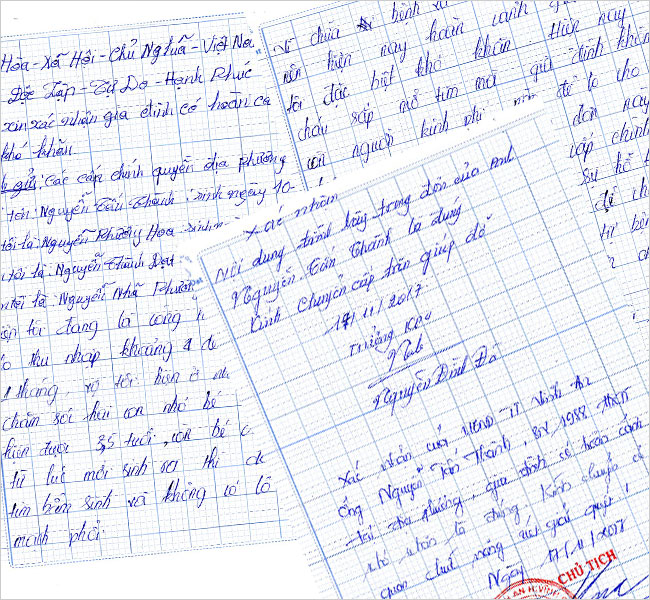 Hòa - Xã Hội - Chủ Nghĩa - Việt Na
Độc Lập - Tự Do - Hạnh Phúc
xin xác nhận gia đình có hoàn cả
khó khăn
gửi: các cấp chính quyền địa phương
tên: Nguyễn Tấn Thành sinh ngày 10
tôi là: Nguyễn Phương Hoa sinh
tôi là: Nguyễn Thành Đạt
tôi là: Nguyễn Nhã Phươn
tôi đang là công
thu nhập khoảng 4 đ
1 tháng, vợ tôi hiện ở
chăm sói hai con nhỏ bé
hiện được 3,5 tuổi, con bé
từ lúc mới sinh ra thì
tim bẩm sinh và không có lỗ
mạch phổi.
chữa bệnh và
nên hiện nay hoàn cảnh
tôi đặc biệt khó khăn. Hiện nay
cháu sắp mổ tim mà gia đình khôn
con người kinh phí để lo cho
đơn này
cấp chính
sự hỗ t
để ch
bên
Xác nhận
Nội dung trình bày trong đơn của anh
Nguyễn Tấn Thành là đúng
Kính chuyển cấp trên giúp đỡ
17/11/2017
Trưởng KP
Nguyễn Đình Đô
Xác nhận của UBND TT Vĩnh An
Ông Nguyễn Tấn Thành, SN 1988, HKTT
tại địa phương, gia đình có hoàn cảnh
khó khăn là đúng. Kính chuyển cơ
quan chức năng xét giải quyết
Ngày 17/11/2017
CHỦ TỊCH
AN H.VĨNH